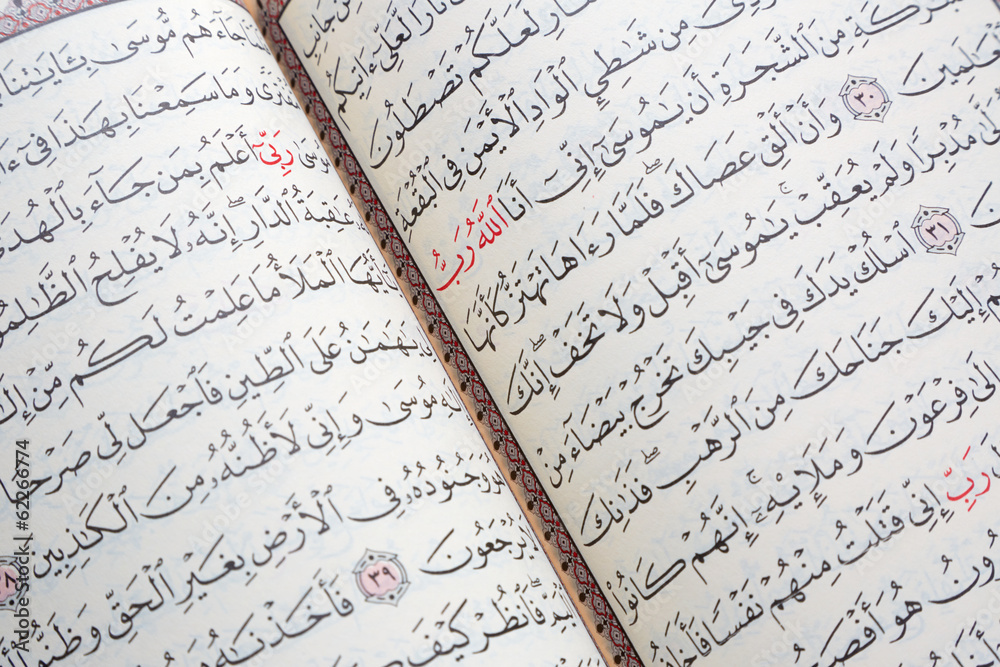 مِن جَانِبِ
نَارًا لَّعَلِّىٓ ءَاتِيكُم
لَعَلَّكُمْ تَصْطَلُونَ
مِن شَٰطِئِ ٱلْوَادِ ٱلْأَيْمَنِ فِى ٱلْبُقْعَةِ
مِنَ ٱلشَّجَرَةِ أَن يَٰمُوسَىٰٓ إِنِّىٓ أَنَا ٱللَّهُ رَبُّ
ٱلْعَٰلَمِينَ ٣٠ وَأَنْ أَلْقِ عَصَاكَ ۖ فَلَمَّا رَءَاهَا تَهْتَزُّ كَأَنَّهَا
مُدْبِرًا وَلَمْ يُعَقِّبْ ۚ يَٰمُوسَىٰٓ أَقْبِلْ وَلَا تَخَفْ ۖ إِنَّكَ
٣١ ٱسْلُكْ يَدَكَ فِى جَيْبِكَ تَخْرُجْ بَيْضَآءَ مِنْ
إِلَيْكَ جَنَاحَكَ مِنَ ٱلرَّهْبِ ۖ فَذَٰنِكَ
إِلَىٰ فِرْعَوْنَ وَمَلَإِيْهِۦٓ ۚ إِنَّهُمْ كَانُوا۟
رَبِّ إِنِّى قَتَلْتُ مِنْهُمْ نَفْسًا فَأَخَافُ
هُوَ أَفْصَحُ
جَآءَهُم مُّوسَىٰ بِـَٔايَٰتِنَا
وَمَا سَمِعْنَا بِهَٰذَا فِىٓ
رَبِّىٓ أَعْلَمُ بِمَن جَآءَ بِٱلْهُدَىٰ
عَٰقِبَةُ ٱلدَّارِ ۖ إِنَّهُۥ لَا يُفْلِحُ ٱلظَّٰلِمُونَ
ٱلْمَلَأُ مَا عَلِمْتُ لَكُم مِّنْ إِلَٰهٍ
يَٰهَٰمَٰنُ عَلَى ٱلطِّينِ فَٱجْعَل لِّى صَرْحًا
مُوسَىٰ وَإِنِّى لَأَظُنُّهُۥ مِنَ ٱلْكَٰذِبِينَ ٣٨
وَجُنُودُهُۥ فِى ٱلْأَرْضِ بِغَيْرِ ٱلْحَقِّ وَظَنُّوٓا۟
يُرْجَعُونَ ٣٩ فَأَخَذْنَٰهُ
فَٱنظُرْ كَيْفَ
Adobe Stock | 62266774